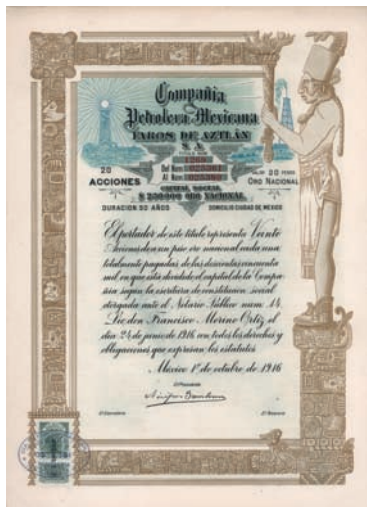 Compañia
Petrolera Mexicana
FAROS DE AZTLÁN
S. A.
20
ACCIONES
Del Num
Al Num
VALOR 20 PESOS
ORO NACIONAL
CAPITAL SOCIAL
$ 250.000 ORO NACIONAL
DURACION 50 AÑOS
DOMICILIO CIUDAD DE MÉXICO
El portador de este título representa Veinte
Acciones de a un peso oro nacional cada una
totalmente pagadas, de las doscientas cincuenta
mil en que está dividido el capital de la Compa-
ñía según la escritura de constitución social
otorgada ante el Notario Público num. 14
Licdon Francisco Merino Ortiz el
día 24 de junio de 1916 con todos los derechos y
obligaciones que expresan los estatutos.
México 1º de octubre de 1916
El Presidente
El Secretario
El Tesorero